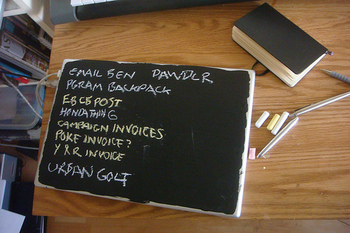 EMAIL SEN DAWDLR
PGRAM BACKPACK
EGCGPOST
HENDATHING
CAMPAIGN INVOICES
POKE INVOICE?
Y&R INVOICE
URBAN GOLF